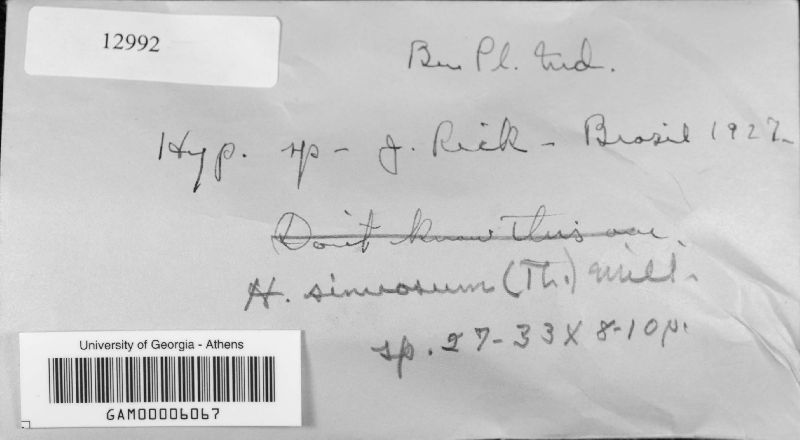 12992
Bu. Pl. Ind.
Hyp. sp - J. Rick - Brasil 1927
Don't know this one.
H. sinuosum (Th.) Mill.
sp. 27-33 X 8-10 µ.
University of Georgia - Athens
GAM00006067